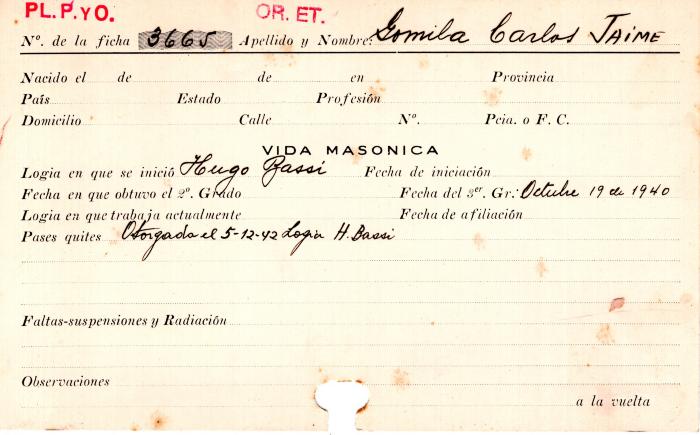 PL. P. YO. OR. ET.
Nº. de la ficha 3665 Apellido y Nombre: Gomila Carlos JAIME
Nacido el de de en Provincia
País Estado Profesión
Domicilio Calle Nº. Pcia. o F. C.
VIDA MASONICA
Logia en que se inició Hugo Bassi Fecha de iniciación
Fecha en que obtuvo el 2º. Grado Fecha del 3er. Gr.: Octubre 19 de 1940
Logia en que trabaja actualmente Fecha de afiliación
Pases quites Otorgada el 5-12-42 Logia H. Bassi
Faltas-suspensiones y Radiación
Observaciones
a la vuelta